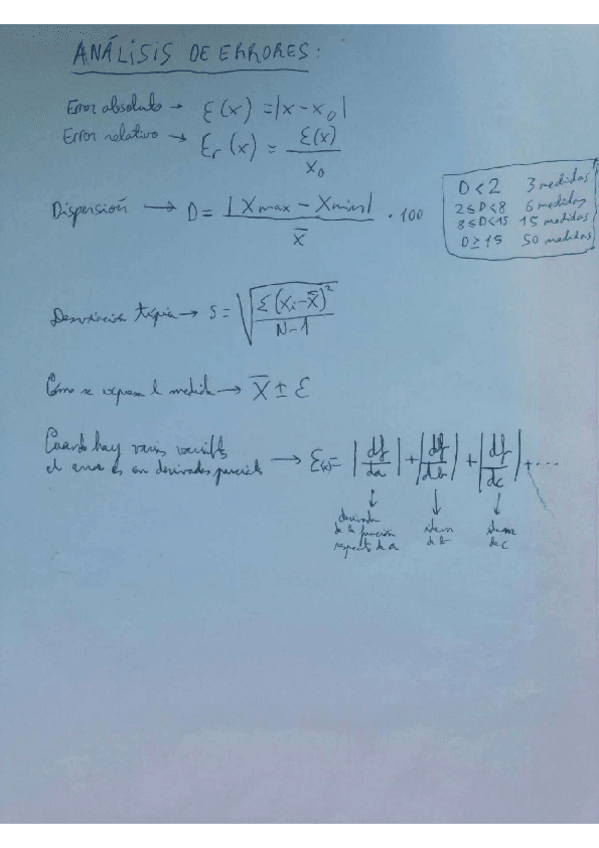 ANÁLISIS DE ERRORES:
Error absoluto → Ɛ(x) = |x - x₀|
Error relativo → Ɛr(x) = Ɛ(x) / x₀
Dispersión → D = |Xmax - Xmin| / x̄ · 100
D < 2 3 medidas
2 ≤ D < 8 6 medidas
8 ≤ D < 15 15 medidas
D ≥ 15 50 medidas
Desviación típica → s = √(Σ(xi - x̄)² / N-1)
Cómo se expresa la medida → X̄ ± Ɛ
Cuando hay varias variables
el error es en derivadas parciales → Ɛ(x) = |df/da| + |df/db| + |df/dc| + ...
↓ ↓ ↓
derivada idem idem
de la función de b de c
respecto de a